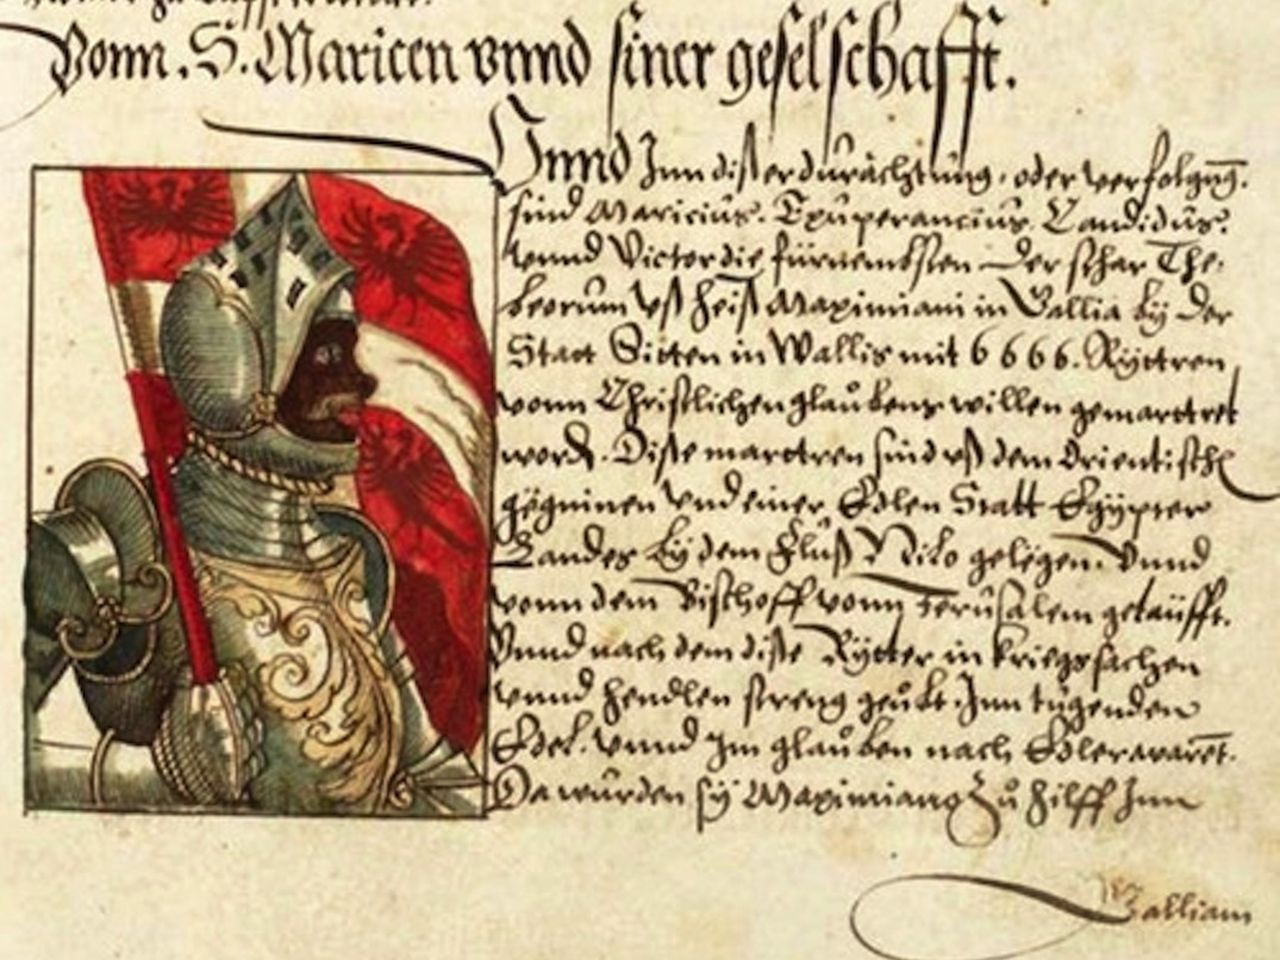 Vonn. S. Maricen vnnd siner geselschafft.
Vnnd Inn disser durächtung, oder verfolgung.
sind Maricius. Exuperancius. Candidus.
vnnd Victor die fürnembsten der schar The-
beorum vß heiß Maximiani in Vallia by der
Statt Sitten in Wallis mit 6666. Rÿttren
vonn Christlichen glaubens willen gemarttret
word. Disse marttren sind vß dem Orientisch
gëgninen vnd einer Edlen Statt Egÿpter
Landes bÿ dem Fluß Nilo gelëgen. Vnnd
vonn dem Bischoff vonn Jerusalem getaüfft.
Vnnd nach dem disse Rÿtter in kriegssachen
vnnd hendlen streng geübt. Inn tugenden
Edel. vnnd Im glauben nach Edler waret.
Da wurden sÿ Maximiano zů hilff Inn
Galliam